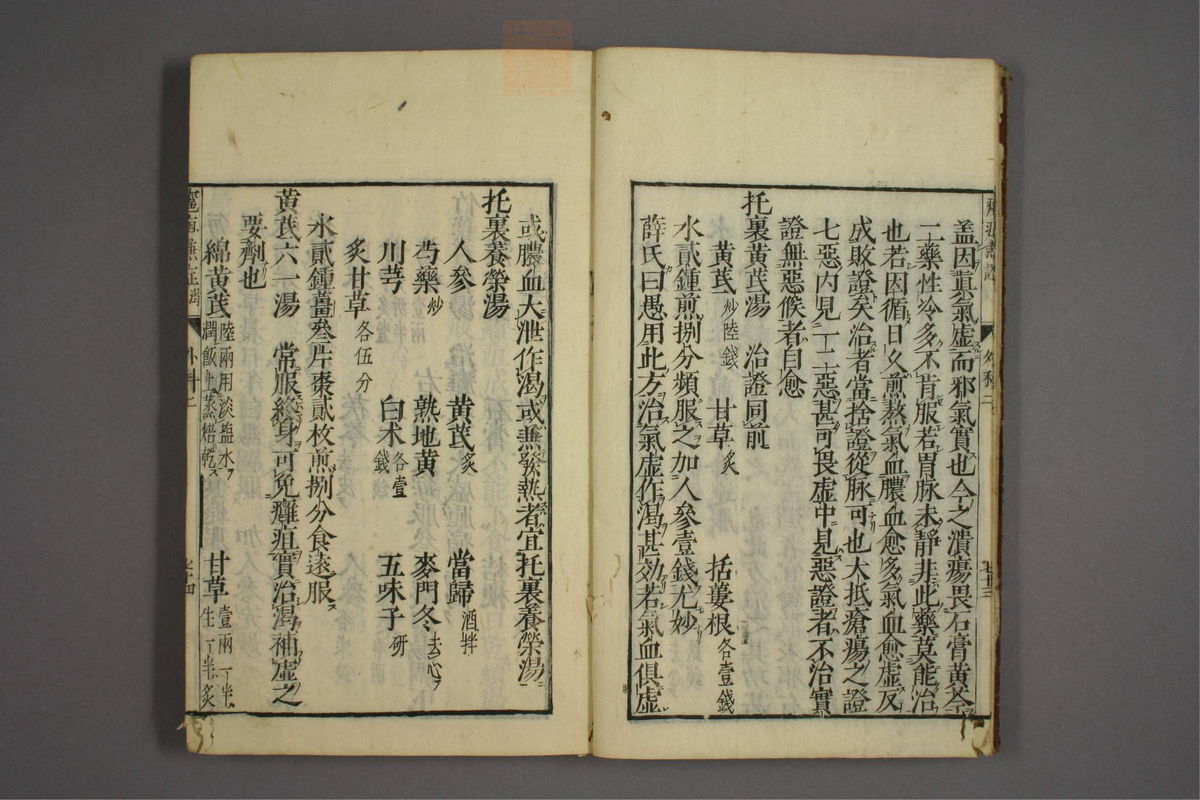 蓋因眞氣虛而邪氣實也今之潰瘍畏石膏黃芩
二藥性冷多不肯服若胃脉未靜非此藥莫能治
也若因循日久煎熬氣血膿血愈多氣血愈虛反
成敗證矣治者當捨證從脉可也大抵瘡瘍之證
七惡内見一二惡甚可畏虛中見惡證者不治實
證無惡候者自愈
托裏黃芪湯 治證同前
黃芪炒陸錢 甘草炙 括蔞根各壹錢
水貳鍾煎捌分頻服之加人參壹錢尤妙
薛氏曰愚用此方治氣虛作渴甚効若氣血俱虛
或膿血大泄作渴或無發熱者宜托裏養榮湯
托裏養榮湯
人參 黃芪炙 當歸酒拌
芍藥炒 熟地黃 麥門冬去心
川芎 白术各壹錢 五味子研
炙甘草各伍分
水貳鍾薑叄片棗貳枚煎捌分食遠服
黃芪六一湯 常服終身可免癰疽實治渴補虛之
要劑也
綿黃芪陸兩用淡塩水潤飯上蒸焙乾 甘草壹兩一半生一半炙
外科二